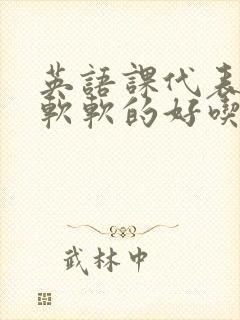 英語課代表
軟軟的好喫
武林中